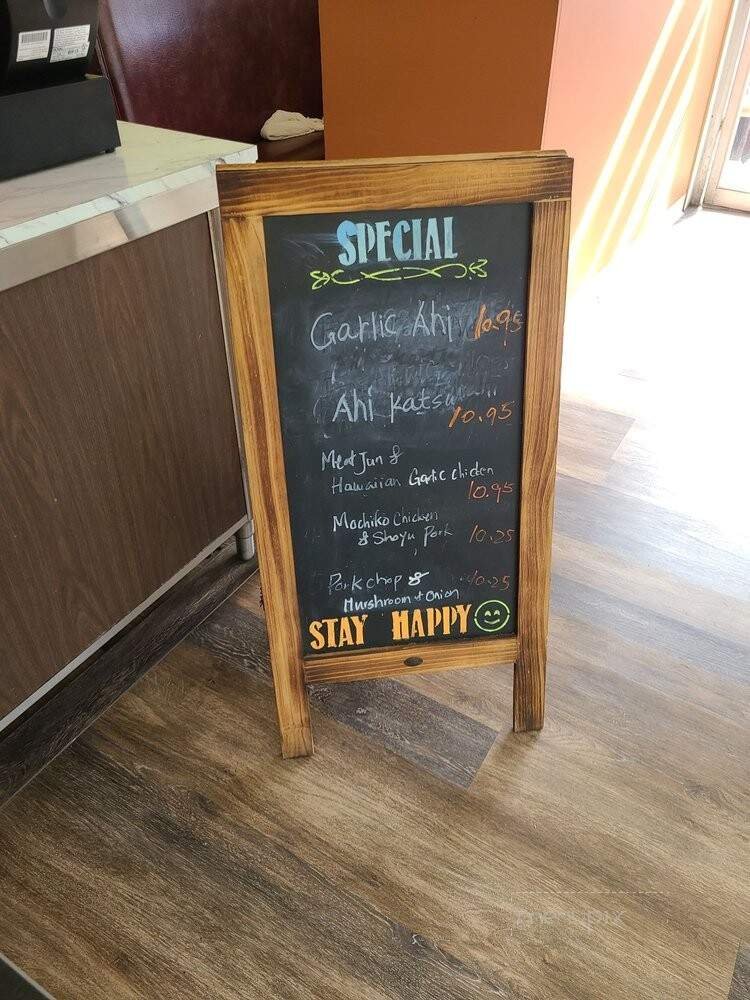 SPECIAL
Garlic Ahi 10.95
Ahi Katsu
10.95
Meat Jun &
Hawaiian Garlic Chicken
10.95
Mochiko Chicken
& Shoyu Pork 10.25
Pork chop & 10.25
Murshroom & Onion
STAY HAPPY
menupix